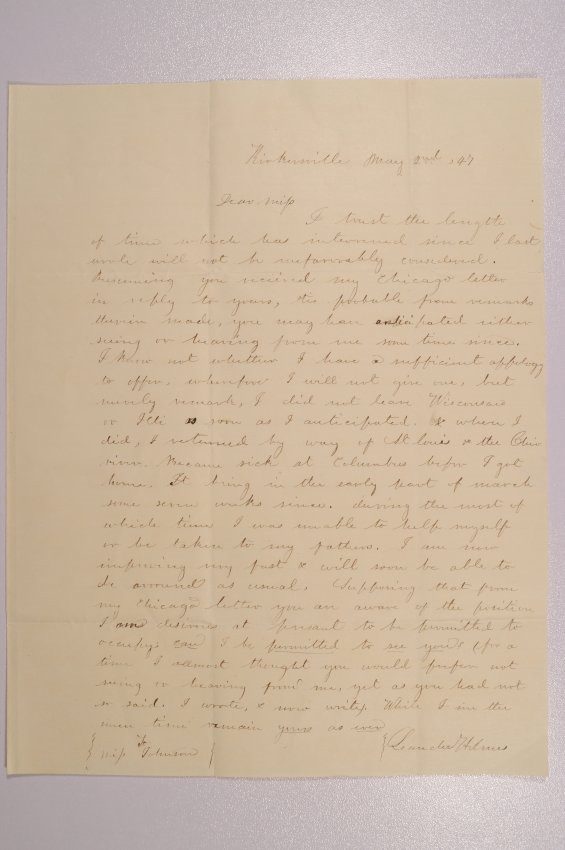 Kirkersville May 2nd 1847
Dear Miss
I trust the length
of time which has intervened since I last
wrote will not be unfavorably considered.
Presuming you received my Chicago letter
in reply to yours, tis probable from remarks
therein made, you may have anticipated either
seeing or hearing from me some time since.
I know not whether I have a sufficient appology
to offer. wherefore I will not give one, but
merely remark, I did not leave Wisconsin
or Ill as soon as I anticipated. & when I
did, I returned by way of St louis & the Ohio
river. Became sick at Columbus before I got
home. It being in the early part of march
some seven weeks since. during the most of
which time I was unable to help myself
or be taken to my fathers. I am now
improving my fast & will soon be able to
be arround as usual. Supposing that from
my Chicago letter you are aware of the position
I am desirous at presant to be permitted to
occupy. can I be permitted to see you? (for a
time I allmost thought you would prefer not
seeing or hearing from me, yet as you had not
so said. I wrote, & now write. While I in the
mean time remain yours as ever
Miss Johnson Leander Holmes